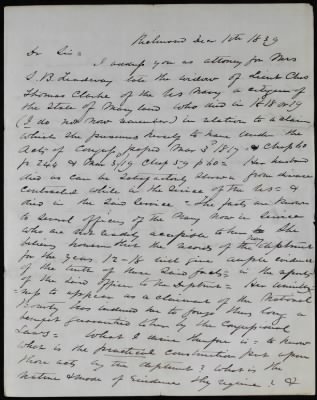 Richmond Decr 10th 1839
Dr Sir =
I address you as attorney for Mrs
S. B. late the widow of Lieut Chas
Thomas Clarke of the US Navy a citizen of
the State of Maryland who died in 1818 or 19
(I do not now remember) in relation to a claim
which she presumes herself to have under the
Acts of Congss passed Mar 3 1817 Chap 60
p 244 & Mar 3/19 Chap 59 p 602 Her husband
died as can be satisfactorily shown from disease
contracted while in the Service of the US = &
died in the Said Service = The facts are known
to several officers of the Navy now in service
who are not readily accessible to her = She
believes however that the records of the department
for the years 12 - 18 will give ample evidence
of the truth of these Said facts = in the
of the Said officer to the Deptment = Her
to appear as a claimant of the National
Bounty has induced me to forego thus long a
benefit guaranteed them by the Congressional
Laws = What I desire therefore is = to know
what is the practical construction put upon
those acts by the deptment? What is the
nature & mode of Evidence they require? &